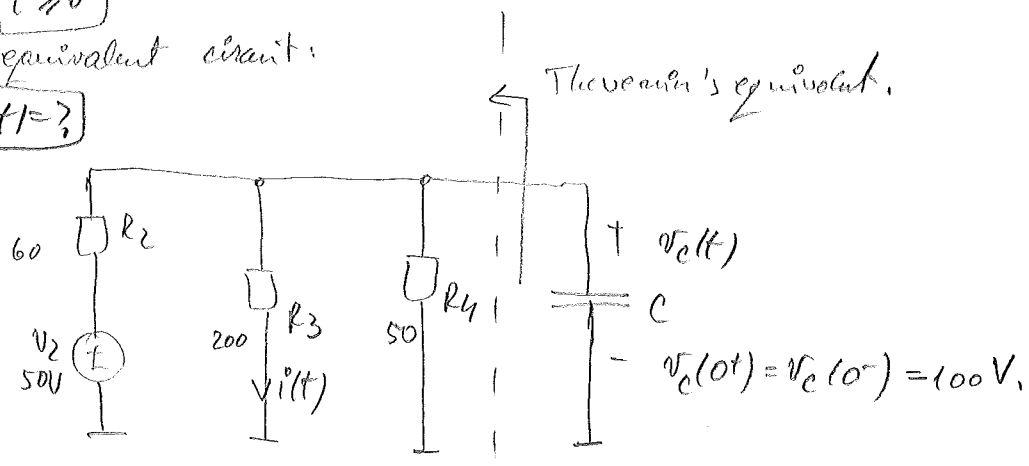 t ≥ 0
equivalent circuit:
Thevenin's equivalent.
t)=?
60
R2
V2
50V
200
R3
i(t)
50
R4
+ vc(t)
C
- vc(0+) = vc(0-) = 100 V.